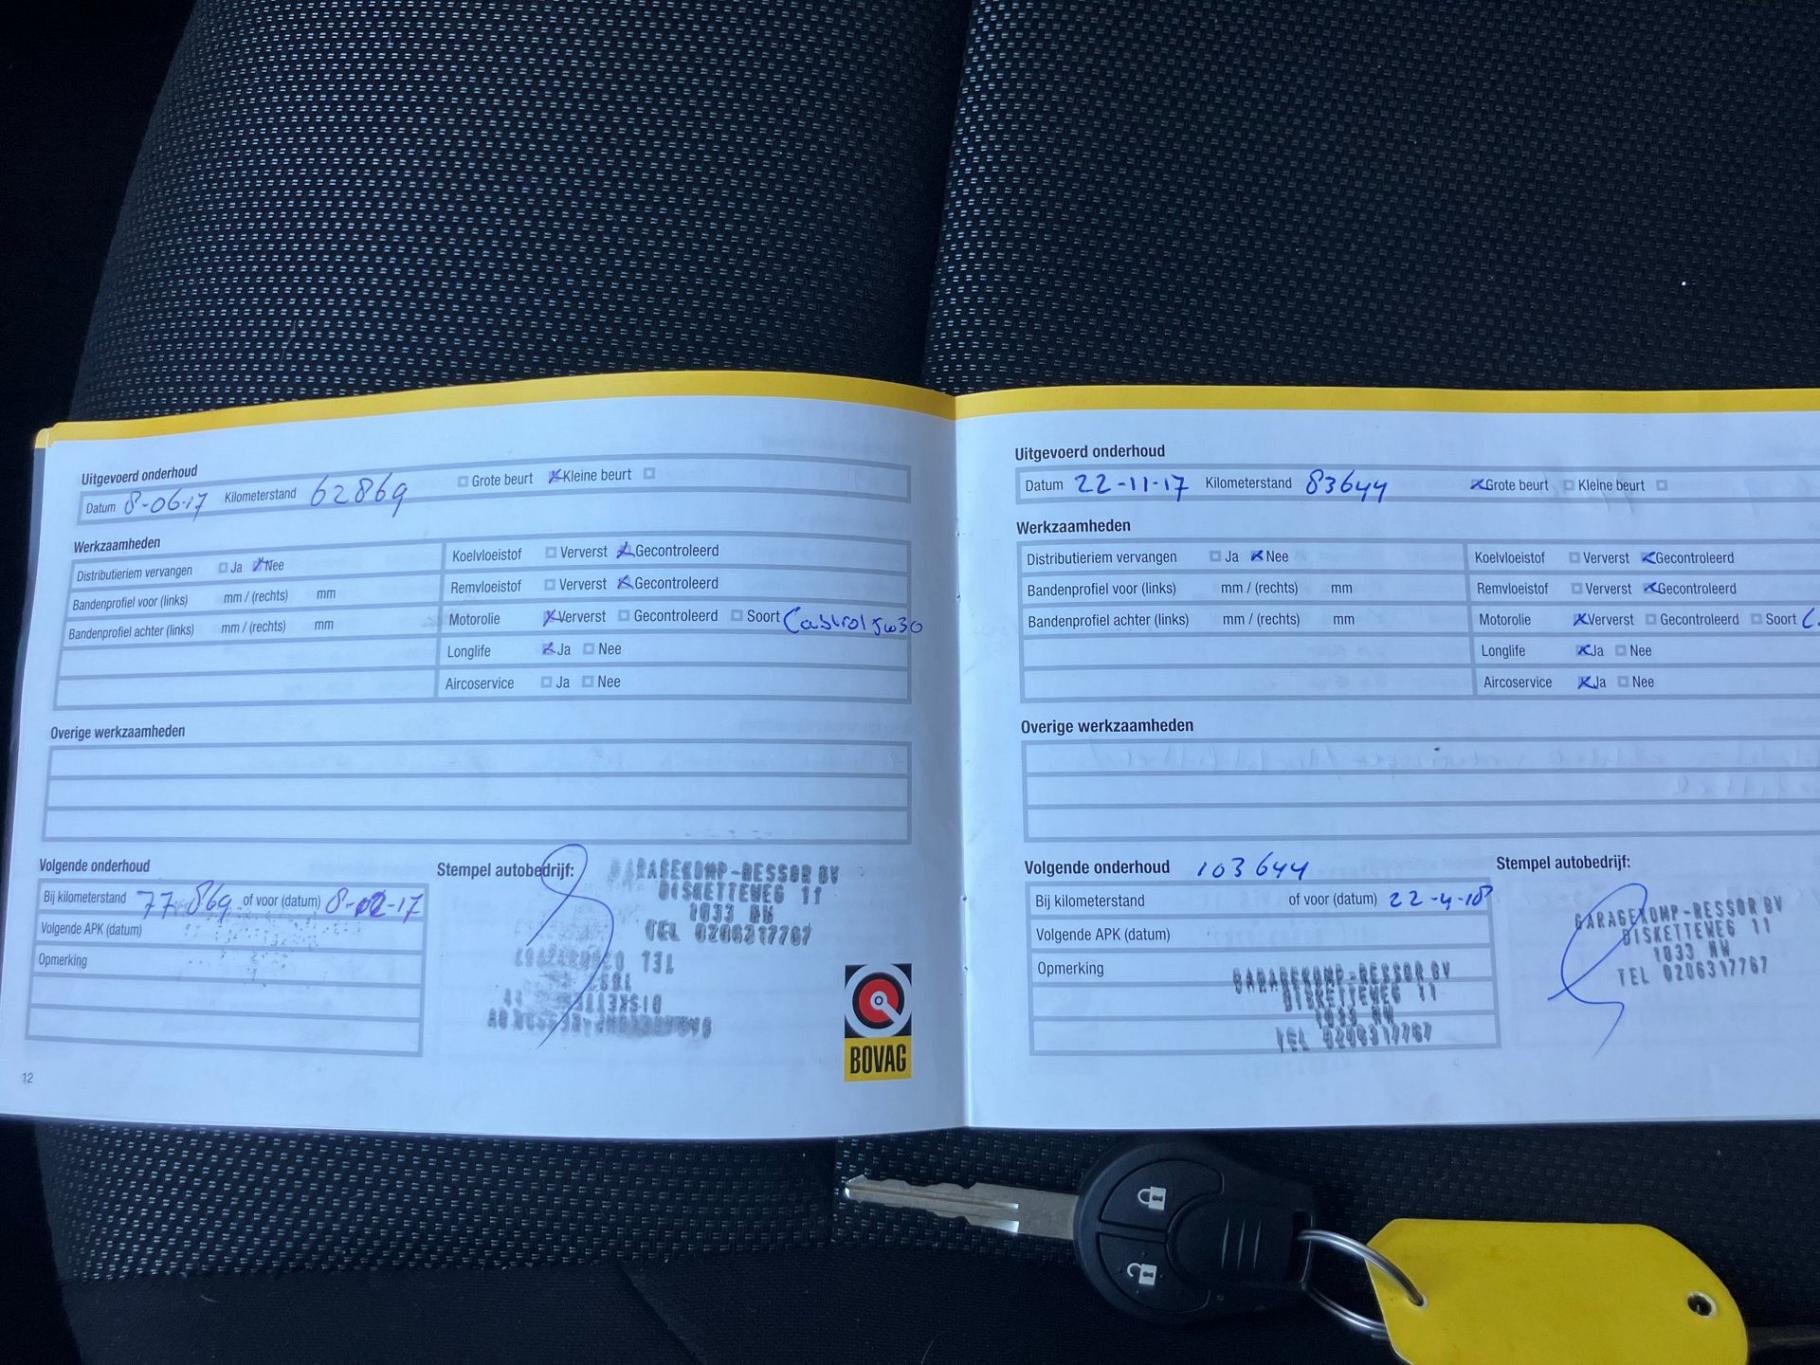 Uitgevoerd onderhoud
Datum 8-06-17 Kilometerstand 62869 Grote beurt Kleine beurt
Werkzaamheden
Distributieriem vervangen Ja Nee
Bandenprofiel voor (links) mm / (rechts) mm
Bandenprofiel achter (links) mm / (rechts) mm
Koelvloeistof Ververst Gecontroleerd
Remvloeistof Ververst Gecontroleerd
Motorolie Ververst Gecontroleerd Soort Castrol 5w30
Longlife Ja Nee
Aircoservice Ja Nee
Overige werkzaamheden
Volgende onderhoud
Bij kilometerstand 77869 of voor (datum) 8-02-17
Volgende APK (datum)
Opmerking
Stempel autobedrijf:
GARAGEKOMP-RESSOR BV
DISKETTEWEG 11
1033 NW
TEL 0206317767
TEL
DISKETTE 11
BOVAG
12
Uitgevoerd onderhoud
Datum 22-11-17 Kilometerstand 83644 Grote beurt Kleine beurt
Werkzaamheden
Distributieriem vervangen Ja Nee
Bandenprofiel voor (links) mm / (rechts) mm
Bandenprofiel achter (links) mm / (rechts) mm
Koelvloeistof Ververst Gecontroleerd
Remvloeistof Ververst Gecontroleerd
Motorolie Ververst Gecontroleerd Soort
Longlife Ja Nee
Aircoservice Ja Nee
Overige werkzaamheden
Volgende onderhoud 103644
Bij kilometerstand of voor (datum) 22-4-18
Volgende APK (datum)
Opmerking
GARAGEKOMP-RESSOR BV
DISKETTEWEG 11
1033 NW
TEL 0206317767
Stempel autobedrijf:
GARAGEKOMP-RESSOR BV
DISKETTEWEG 11
1033 NW
TEL 0206317767